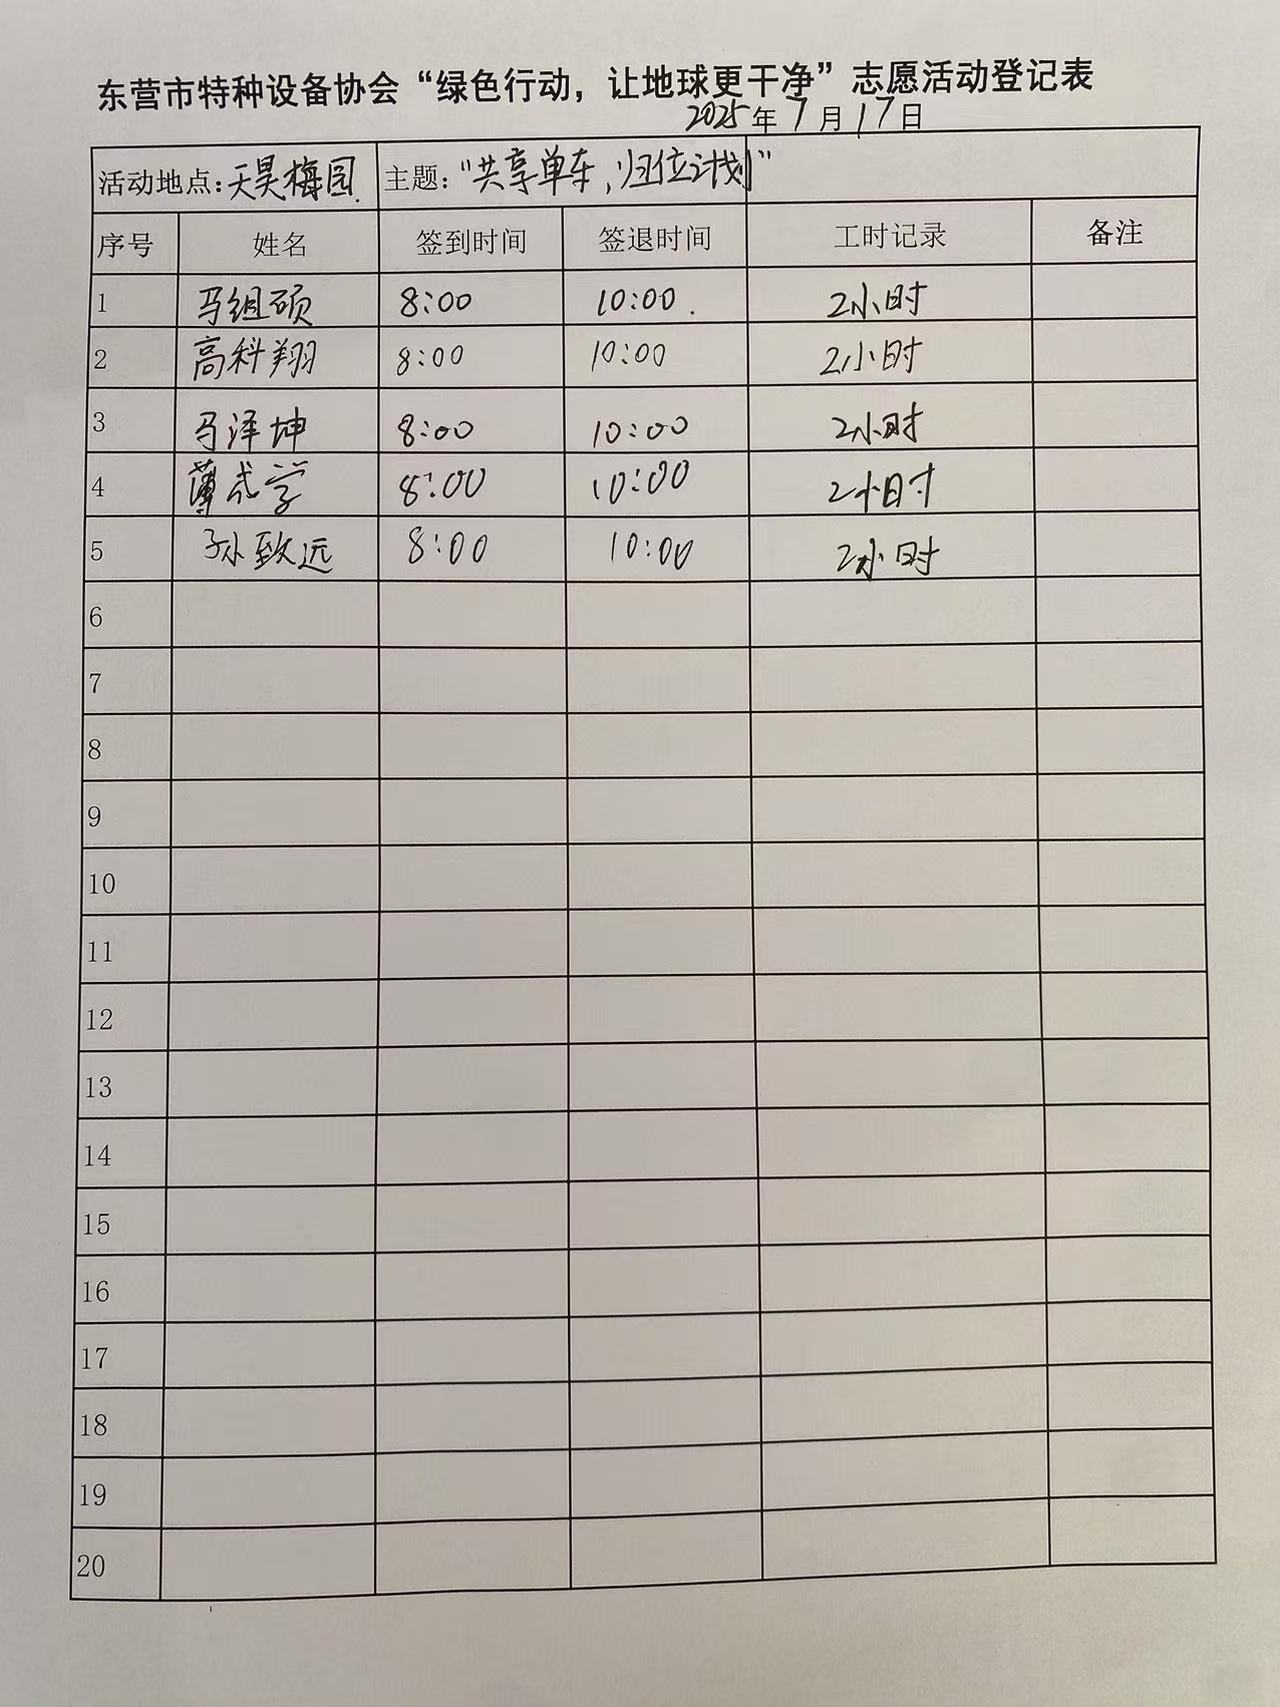 东营市特种设备协会“绿色行动，让地球更干净”志愿活动登记表
2025年7月17日
活动地点：天昊梅园 主题：“共享单车，归位计划”
序号 姓名 签到时间 签退时间 工时记录 备注
1 马组硕 8:00 10:00. 2小时
2 高科翔 8:00 10:00 2小时
3 马泽坤 8:00 10:00 2小时
4 薄成学 8:00 10:00 2小时
5 孙致远 8:00 10:00 2小时
6
7
8
9
10
11
12
13
14
15
16
17
18
19
20